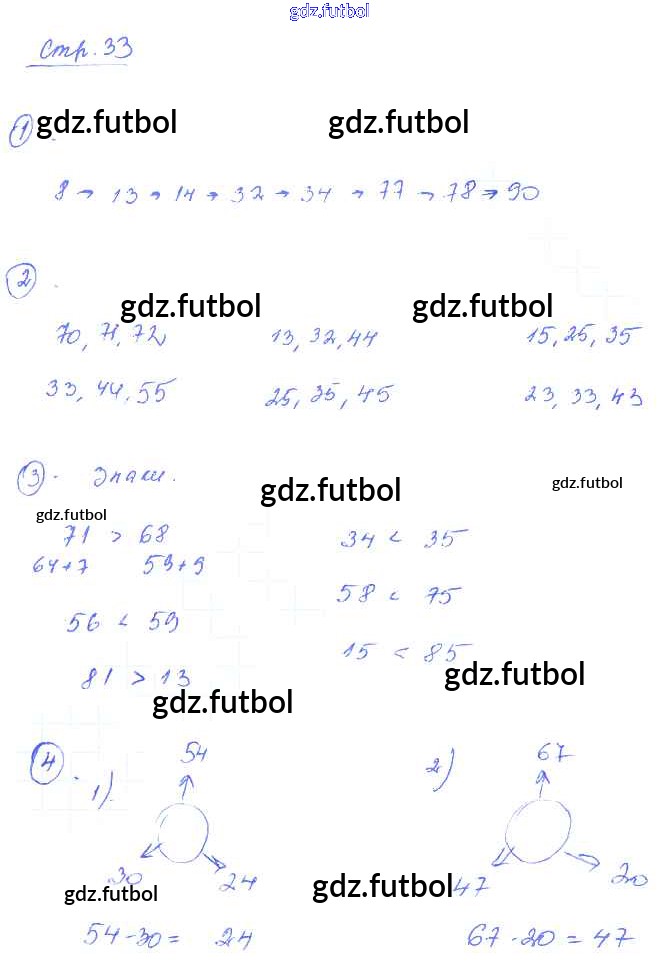 gdz.futbol
Стр. 33
1 gdz.futbol gdz.futbol
8 → 13 → 14 → 32 → 34 → 77 → 78 → 90
2.
gdz.futbol gdz.futbol
70, 71, 72 13, 32, 44 15, 25, 35
33, 44, 55 25, 35, 45 23, 33, 43
3. Знаки.
gdz.futbol gdz.futbol
gdz.futbol
71 > 68 34 < 35
64+7 59+9
58 < 75
56 < 59
15 < 85
81 > 13 gdz.futbol
gdz.futbol
4. 1) 54 2) 67
30 24 47 20
gdz.futbol gdz.futbol
54-30= 24 67-20=47